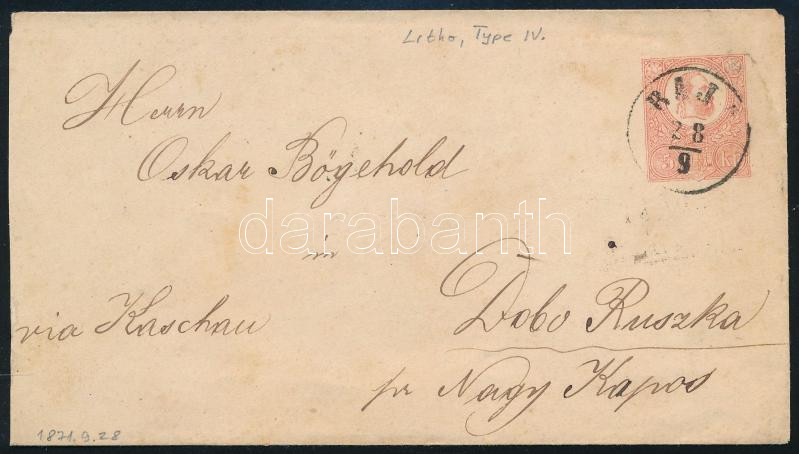 Litho, Type IV.
RAJ
28
9
5 Kr
Herrn
Oskar Bögehold
in
via Kaschau
Dobo Ruszka
pr Nagy Kapos
darabanth
1871.9.28